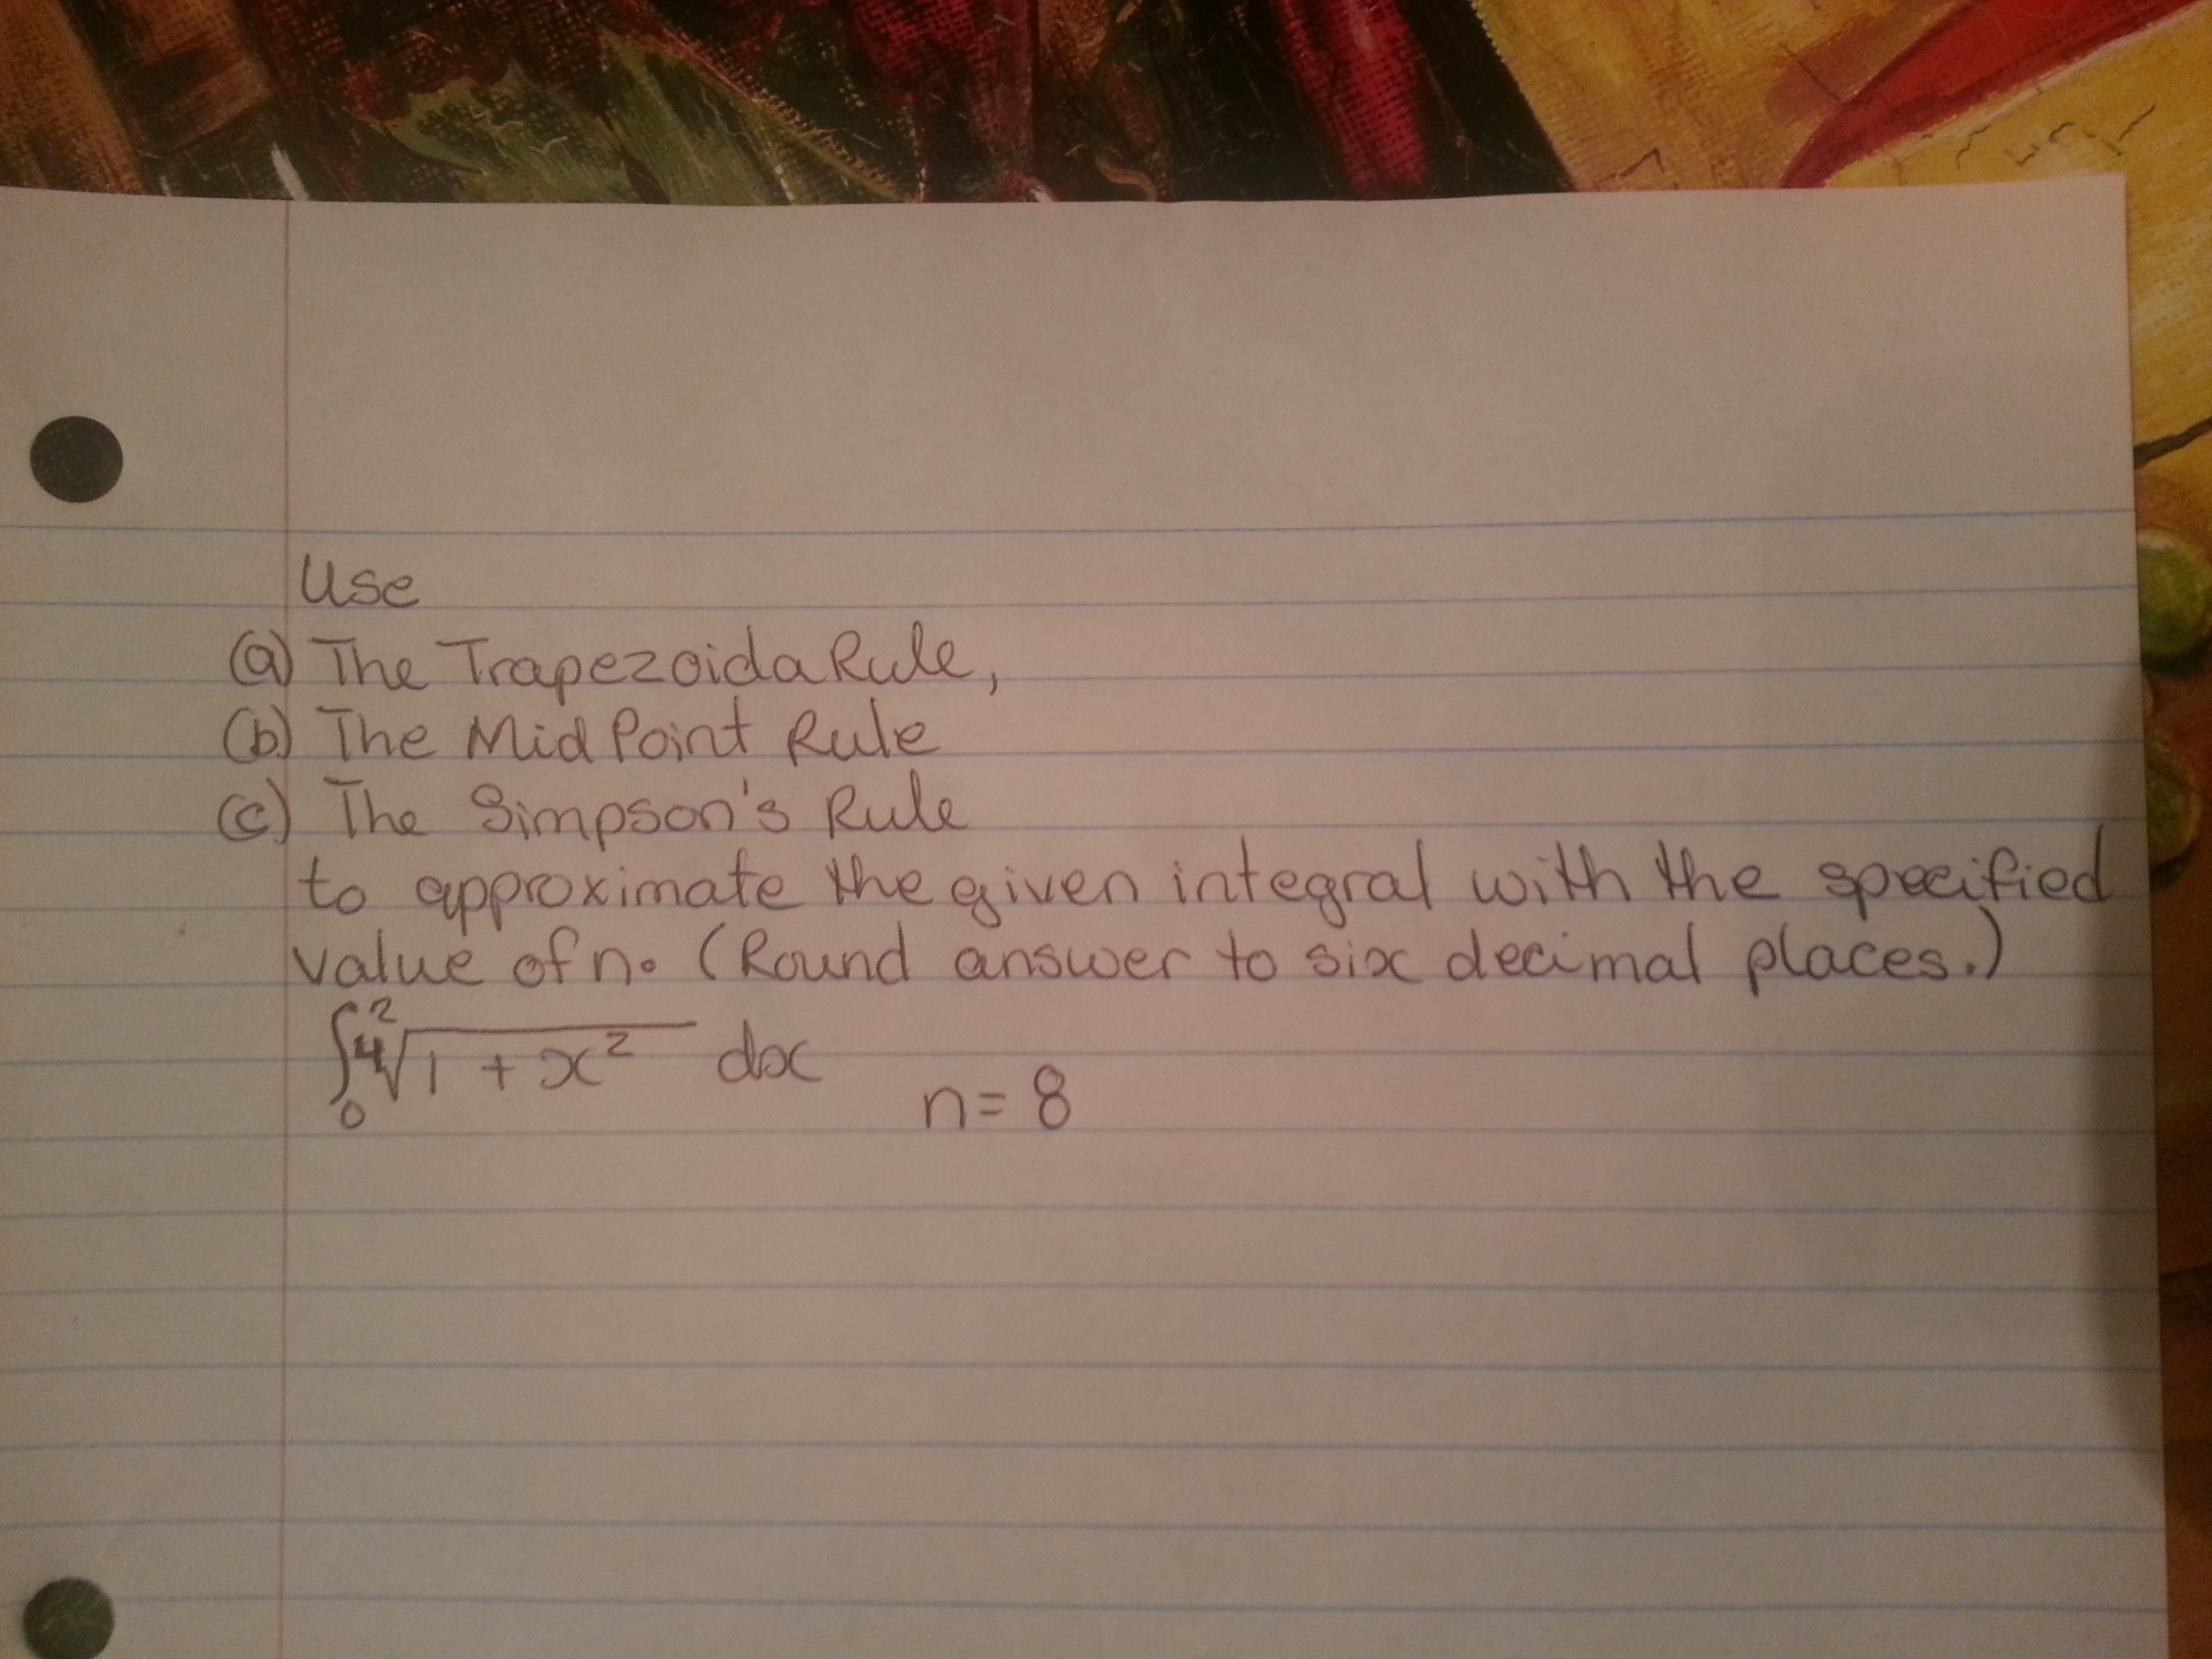 Use
(a) The Trapezoida Rule,
(b) The Mid Point Rule
(c) The Simpson's Rule
to approximate the given integral with the specified
value of n. (Round answer to six decimal places.)
∫₀² ∜(1 + x²) dx n = 8